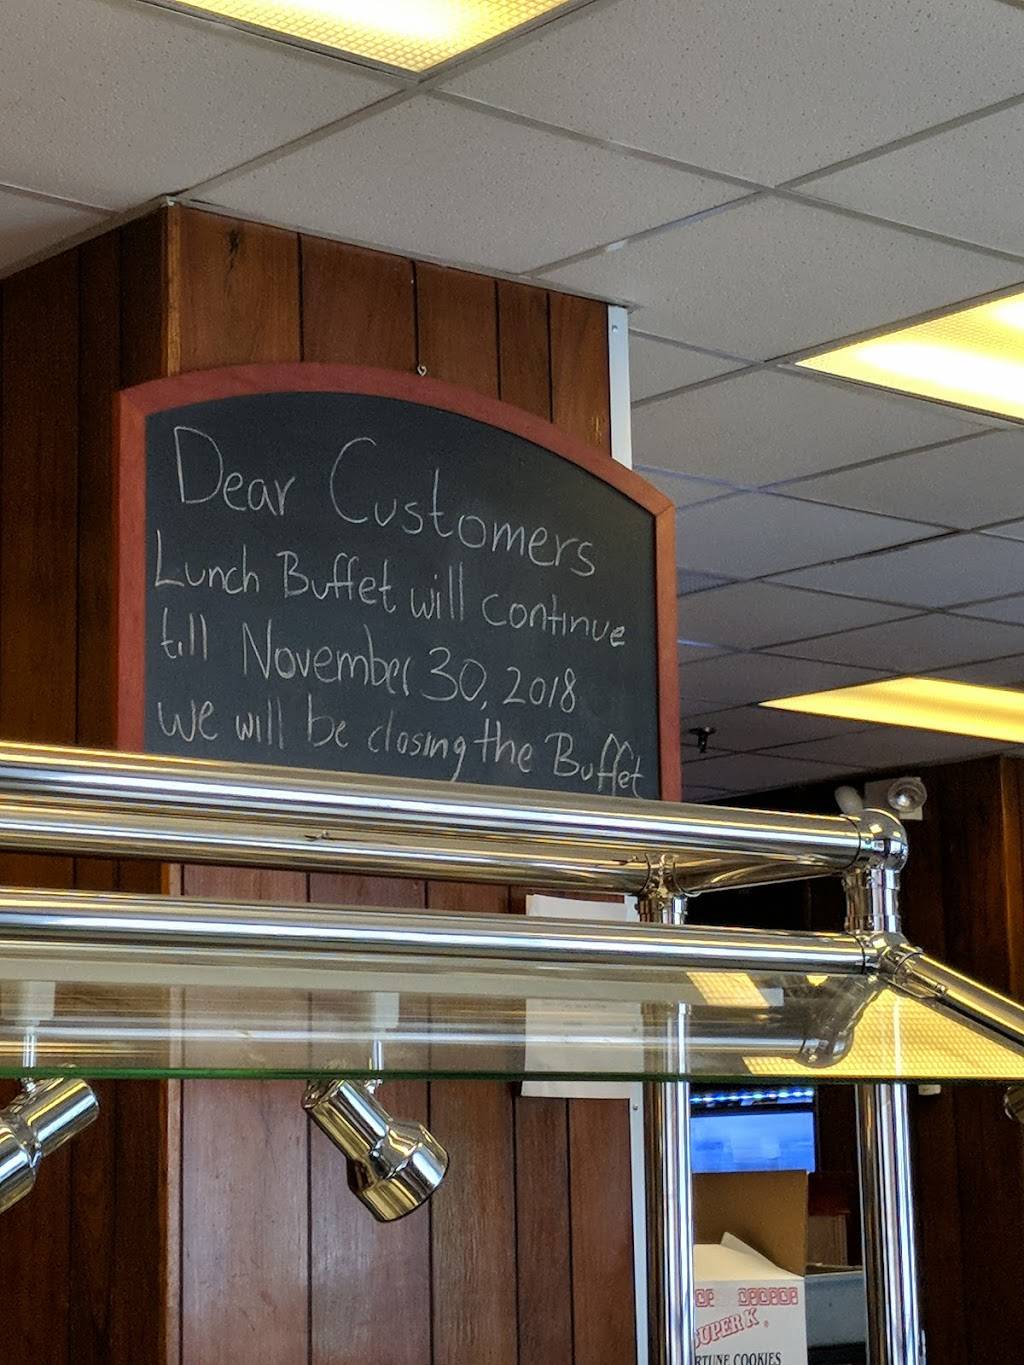 Dear Customers
Lunch Buffet will continue
till November 30, 2018
we will be closing the Buffet
SUPER K
RTUNE COOKIES